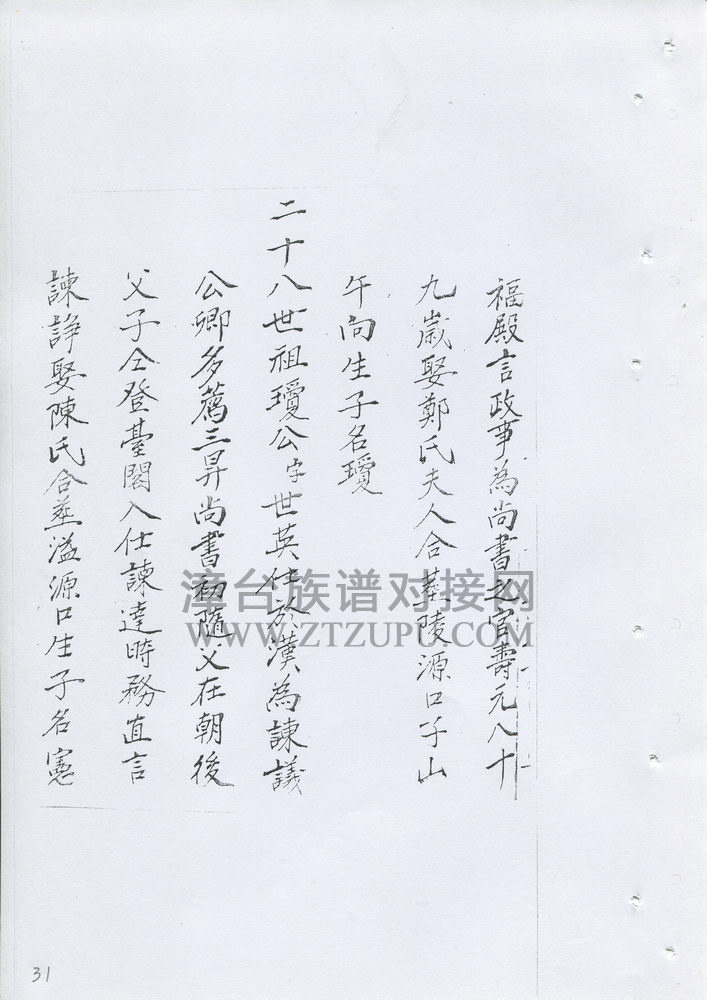 福殿言政事為尚書之官壽元八十
九歲娶鄭氏夫人合葬陵源口子山
午向生子名瓊
二十八世祖瓊公字世英仕於漢為諫議
公卿多薦三昇尚書初隨父在朝後
父子仝登臺閣入仕諫達時務直言
諫諍娶陳氏合葬溢源口生子名憲
漳台族谱对接网
WWW.ZTZUPU.COM
31